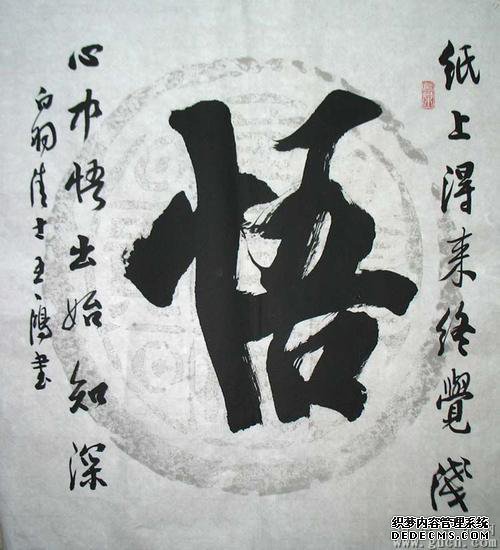 紙上淂来终覺淺
悟
心中悟出始知深
白羽士王鴻書
织梦内容管理系统
DEDECMS.COM